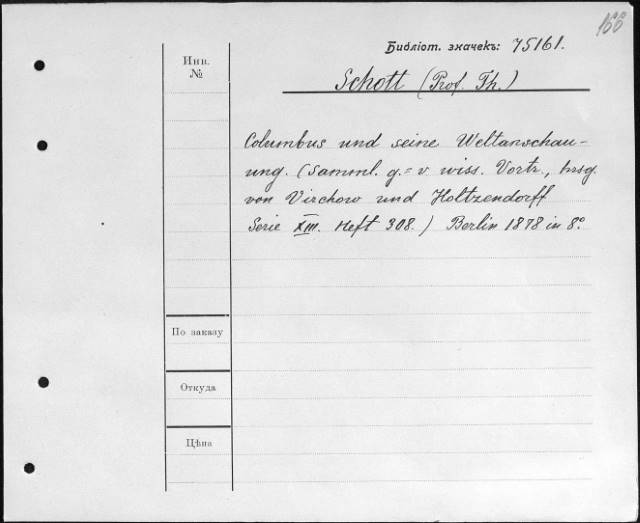 166
Библіот. значекъ: 75161.
Инв.
№
Schott (Prof. Th.)
Columbus und seine Weltanschau-
ung. (Samml. g.= v. wiss. Vortr., hrsg.
von Virchow und Holtzendorff
Serie XIII. Heft 308.) Berlin 1878 in 8°.
По заказу
Откуда
Цѣна